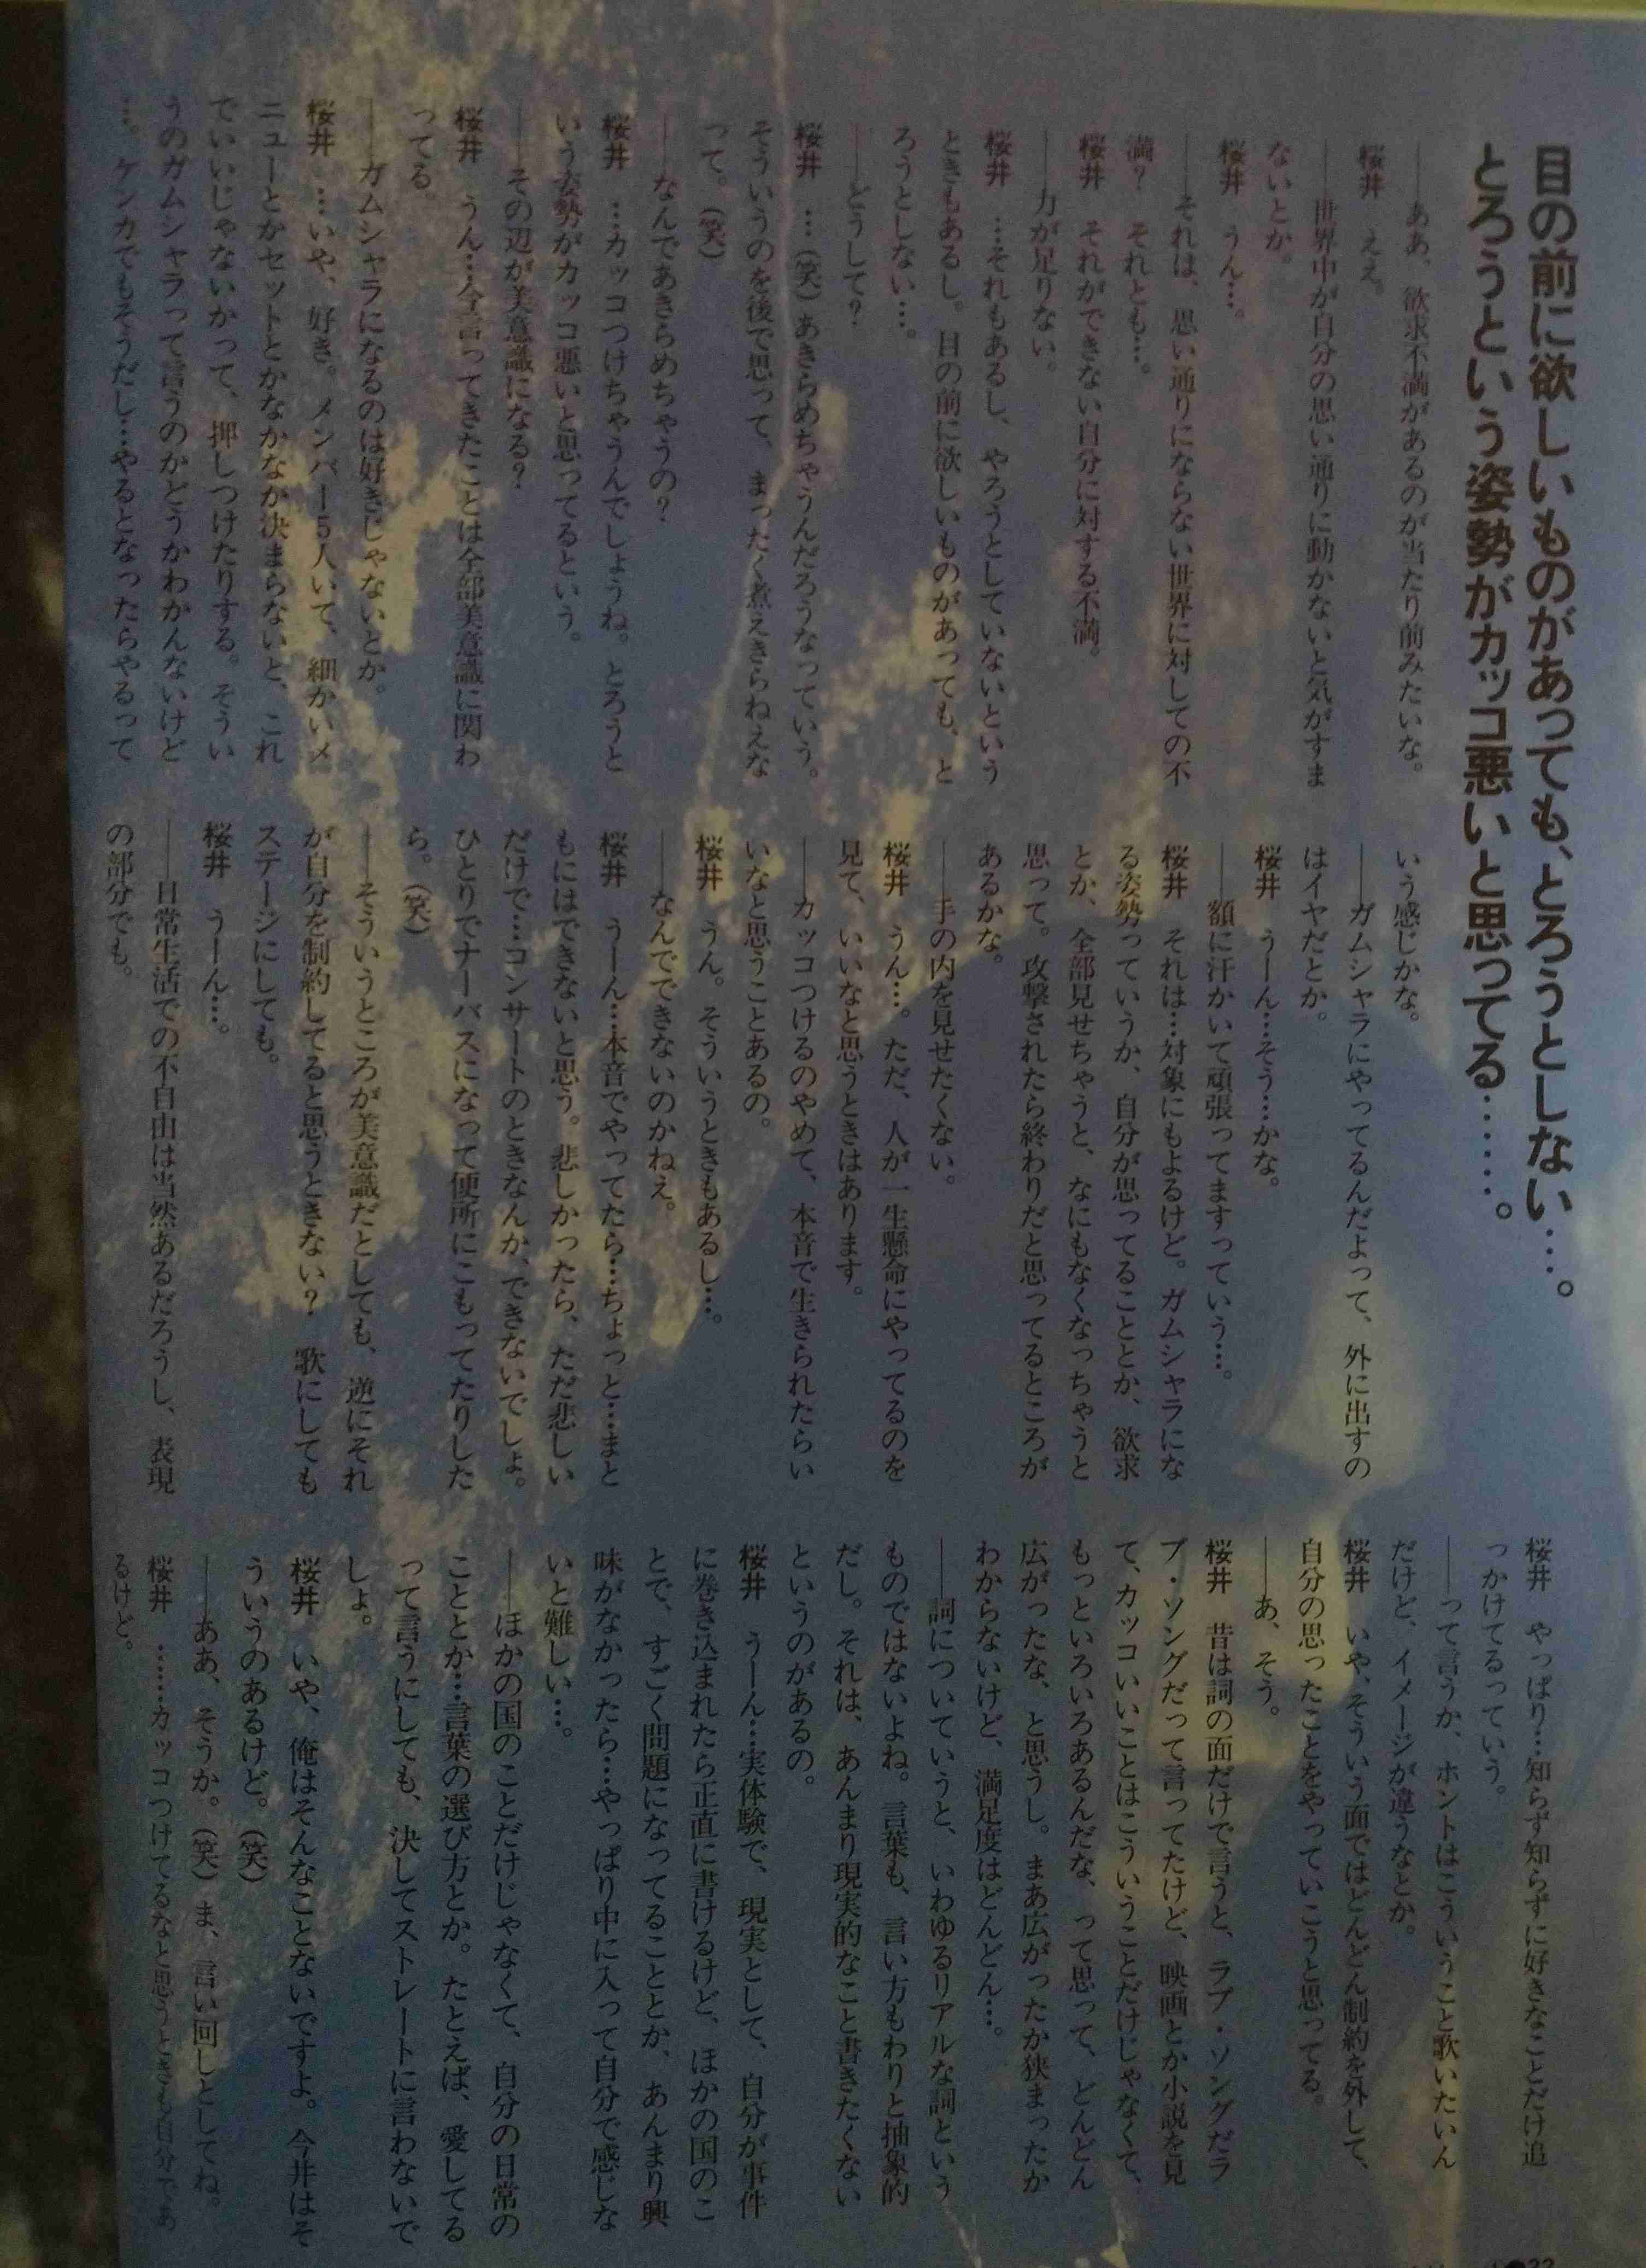 目の前に欲しいものがあっても、とろうとしない…。
とろうという姿勢がカッコ悪いと思ってる……。
――ああ、欲求不満があるのが当たり前みたいな。
桜井　ええ。
――世界中が自分の思い通りに動かないと気がすま
ないとか。
桜井　うん…。
――それは、思い通りにならない世界に対しての不
満？　それとも…。
桜井　それができない自分に対する不満。
――力が足りない。
桜井　…それもあるし、やろうとしていないという
ときもあるし。目の前に欲しいものがあっても、と
ろうとしない…。
――どうして？
桜井　…（笑）あきらめちゃうんだろうなっていう。
そういうのを後で思って、まったく煮えきらねえな
って。（笑）
――なんであきらめちゃうの？
桜井　…カッコつけちゃうんでしょうね。とろうと
いう姿勢がカッコ悪いと思ってるという。
――その辺が美意識になる？
桜井　うん…今言ってきたことは全部美意識に関わ
ってる。
――ガムシャラになるのは好きじゃないとか。
桜井　…いや、好き。メンバー5人いて、細かいメ
ニューとかセットとかなかなか決まらないと、これ
でいいじゃないかって、押しつけたりする。そうい
うのガムシャラって言うのかどうかわかんないけど
…。ケンカでもそうだし…やるとなったらやるって
いう感じかな。
――ガムシャラにやってるんだよって、外に出すの
はイヤだとか。
桜井　うーん…そう…かな。
――額に汗かいて頑張ってますっていう…。
桜井　それは…対象にもよるけど。ガムシャラにな
る姿勢っていうか、自分が思ってることとか、欲求
とか、全部見せちゃうと、なにもなくなっちゃうと
思って。攻撃されたら終わりだと思ってるところが
あるかな。
――手の内を見せたくない。
桜井　うん…。ただ、人が一生懸命にやってるのを
見て、いいなと思うときはあります。
――カッコつけるのやめて、本音で生きられたらい
いなと思うことあるの。
桜井　うん。そういうときもあるし…。
――なんでできないのかねえ。
桜井　うーん…本音でやってたら…ちょっと…まと
もにはできないと思う。悲しかったら、ただ悲しい
だけで…コンサートのときなんか、できないでしょ。
ひとりでナーバスになって便所にこもってたりした
ら。（笑）
――そういうところが美意識だとしても、逆にそれ
が自分を制約してると思うときない？　歌にしても
ステージにしても。
桜井　うーん…。
――日常生活での不自由は当然あるだろうし、表現
の部分でも。
桜井　やっぱり…知らず知らずに好きなことだけ追
っかけてるっていう。
――って言うか、ホントはこういうこと歌いたいん
だけど、イメージが違うなとか。
桜井　いや、そういう面ではどんどん制約を外して、
自分の思ったことをやっていこうと思ってる。
――あ、そう。
桜井　昔は詞の面だけで言うと、ラブ・ソングだラ
ブ・ソングだって言ってたけど、映画とか小説を見
て、カッコいいことはこういうことだけじゃなくて、
もっといろいろあるんだな、って思って、どんどん
広がったな、と思うし。まあ広がったか狭まったか
わからないけど、満足度はどんどん…。
――詞についていうと、いわゆるリアルな詞という
ものではないよね。言葉も、言い方もわりと抽象的
だし。それは、あんまり現実的なこと書きたくない
というのがあるの。
桜井　うーん…実体験で、現実として、自分が事件
に巻き込まれたら正直に書けるけど、ほかの国のこ
とで、すごく問題になってることとか、あんまり興
味がなかったら…やっぱり中に入って自分で感じな
いと難しい…。
――ほかの国のことだけじゃなくて、自分の日常の
こととか…言葉の選び方とか。たとえば、愛してる
って言うにしても、決してストレートに言わないで
しょ。
桜井　いや、俺はそんなことないですよ。今井はそ
ういうのあるけど。（笑）
――ああ、そうか。（笑）ま、言い回しとしてね。
桜井　……カッコつけてるなと思うときも自分であ
るけど。